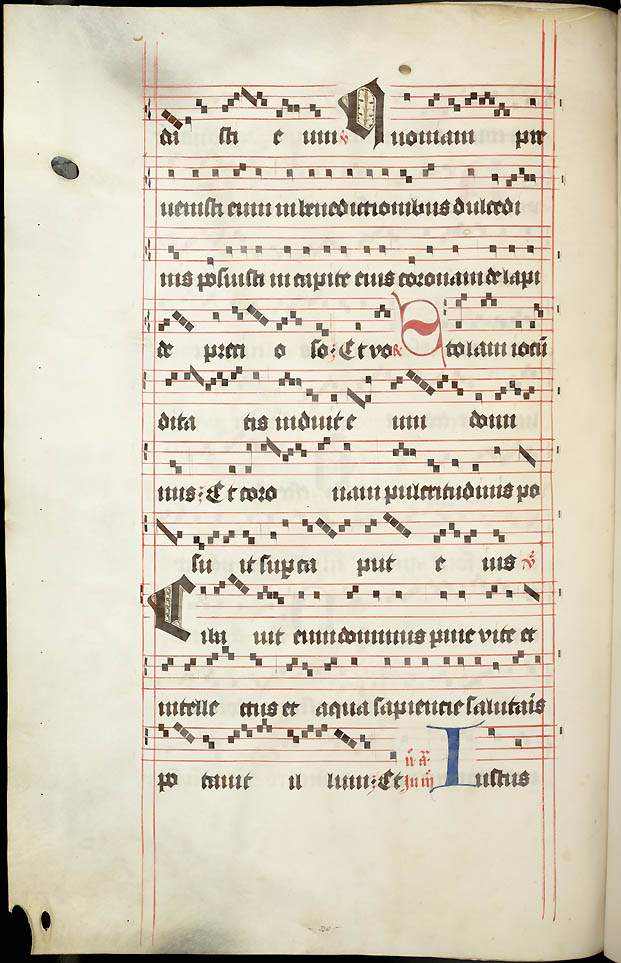 di sti e um ℣ Quoniam pre
uenisti eum in benedictionibus dulcedi
nis posuisti in capite eius coronam de lapi
de preti o so: Et vo ℟ Stolam iocū
dita tis induit e um domi
nus: Et coro nam pulcritudinis po
su it supra put e ius ℣
Ciba uit eum dominus pane vite et
intelle ctus et aqua sapiencie salutaīs
po tauit il lum: Et Iustus